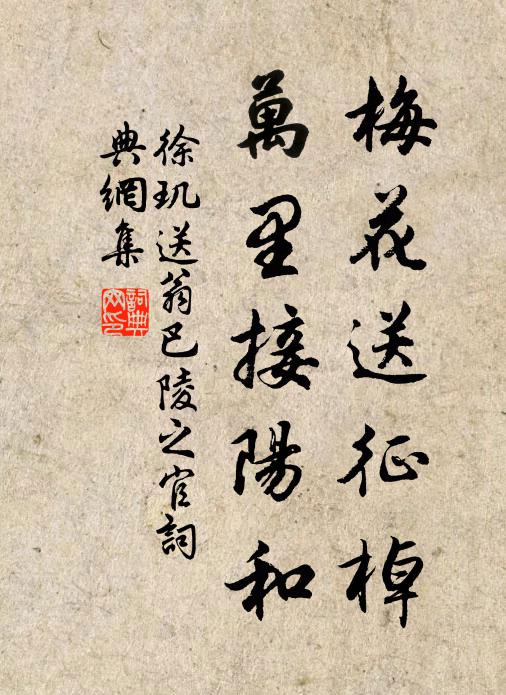 梅花送征棹
萬里接陽和
徐玑送翁巴陵之官詞
典網集
詞典
网印